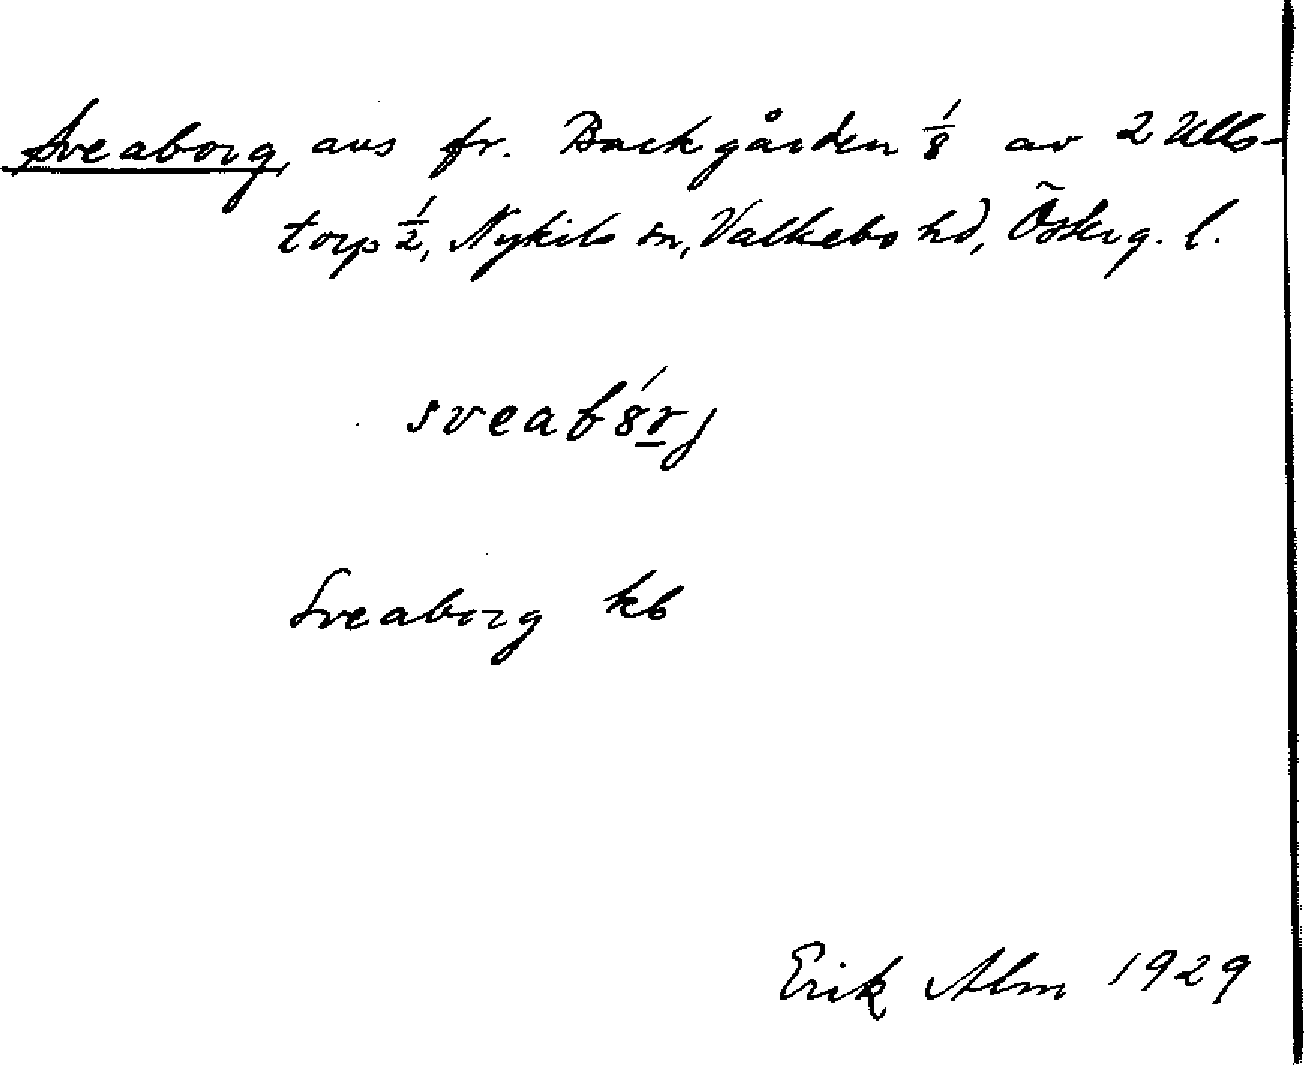 Sveaborg, avs fr. Backgården 1/8 av 2 Ulls-
torp 1/2, Nykils sn, Valkebo hd, Österg. l.
sveab8́r̲j
Sveaborg kb
Erik Alm 1929